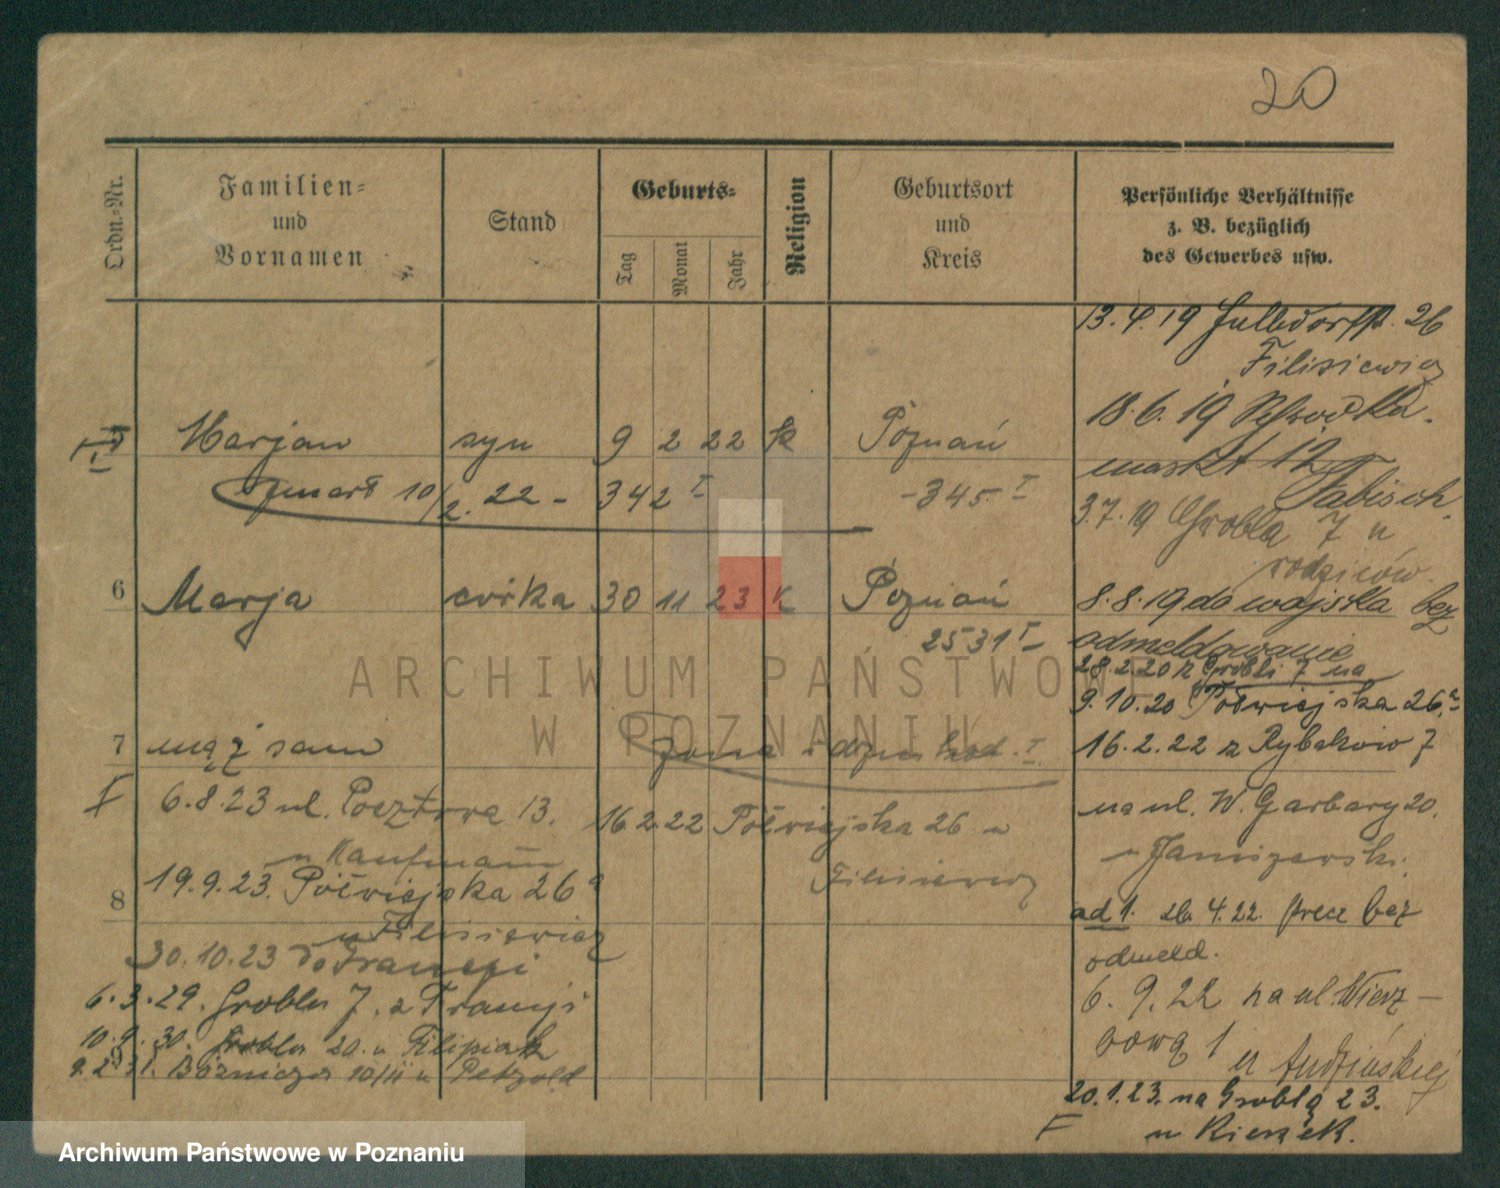 20
Ordn.-Nr.
Familien-
und
Vornamen
Stand
Geburts-
Tag
Monat
Jahr
Religion
Geburtsort
und
Kreis
Persönliche Verhältnisse
z. B. bezüglich
des Gewerbes usw.
Marjan syn 9 2 22 k Poznań
zmarł 10/2. 22 - 342 I - 345 I
6 Marja córka 30 11 23 K Poznań
2531 I
7 mąż sam żona i dzm. kod. I
6.8.23 ul. Pocztowa 13. 16 2 22 Półwiejska 26 u
u Kaufmann Filisiewicz
19.9.23. Półwiejska 26a
8
u Filisiewicz
30.10.23 do Francji
6.3.29. Grobla 7. z Francji
10.9.30. Grobla 20. u Filipiak
9
9.2.31. Bóżnicza 10/11 u Petzold
13.4.19 26
Filisiewicz
18.6.19
markt 12
Fabisch.
3.7.19 Grobla 7 u
rodziców.
8.8.19 do wojska bez
odmeldowanie
28.2.20 z Grobli 7 na
9.10.20 Półwiejska 26a
16.2.22 z Rybaków 7
na ul. W. Garbary 20.
u
ad 1. 4.22. precz bez
odmeld.
6.9.22 na ul. Wierz-
bową 1
u
20.1.23. na Groblą 23.
u Kierzek.
ARCHIWUM PAŃSTWOWE
W POZNANIU
Archiwum Państwowe w Poznaniu